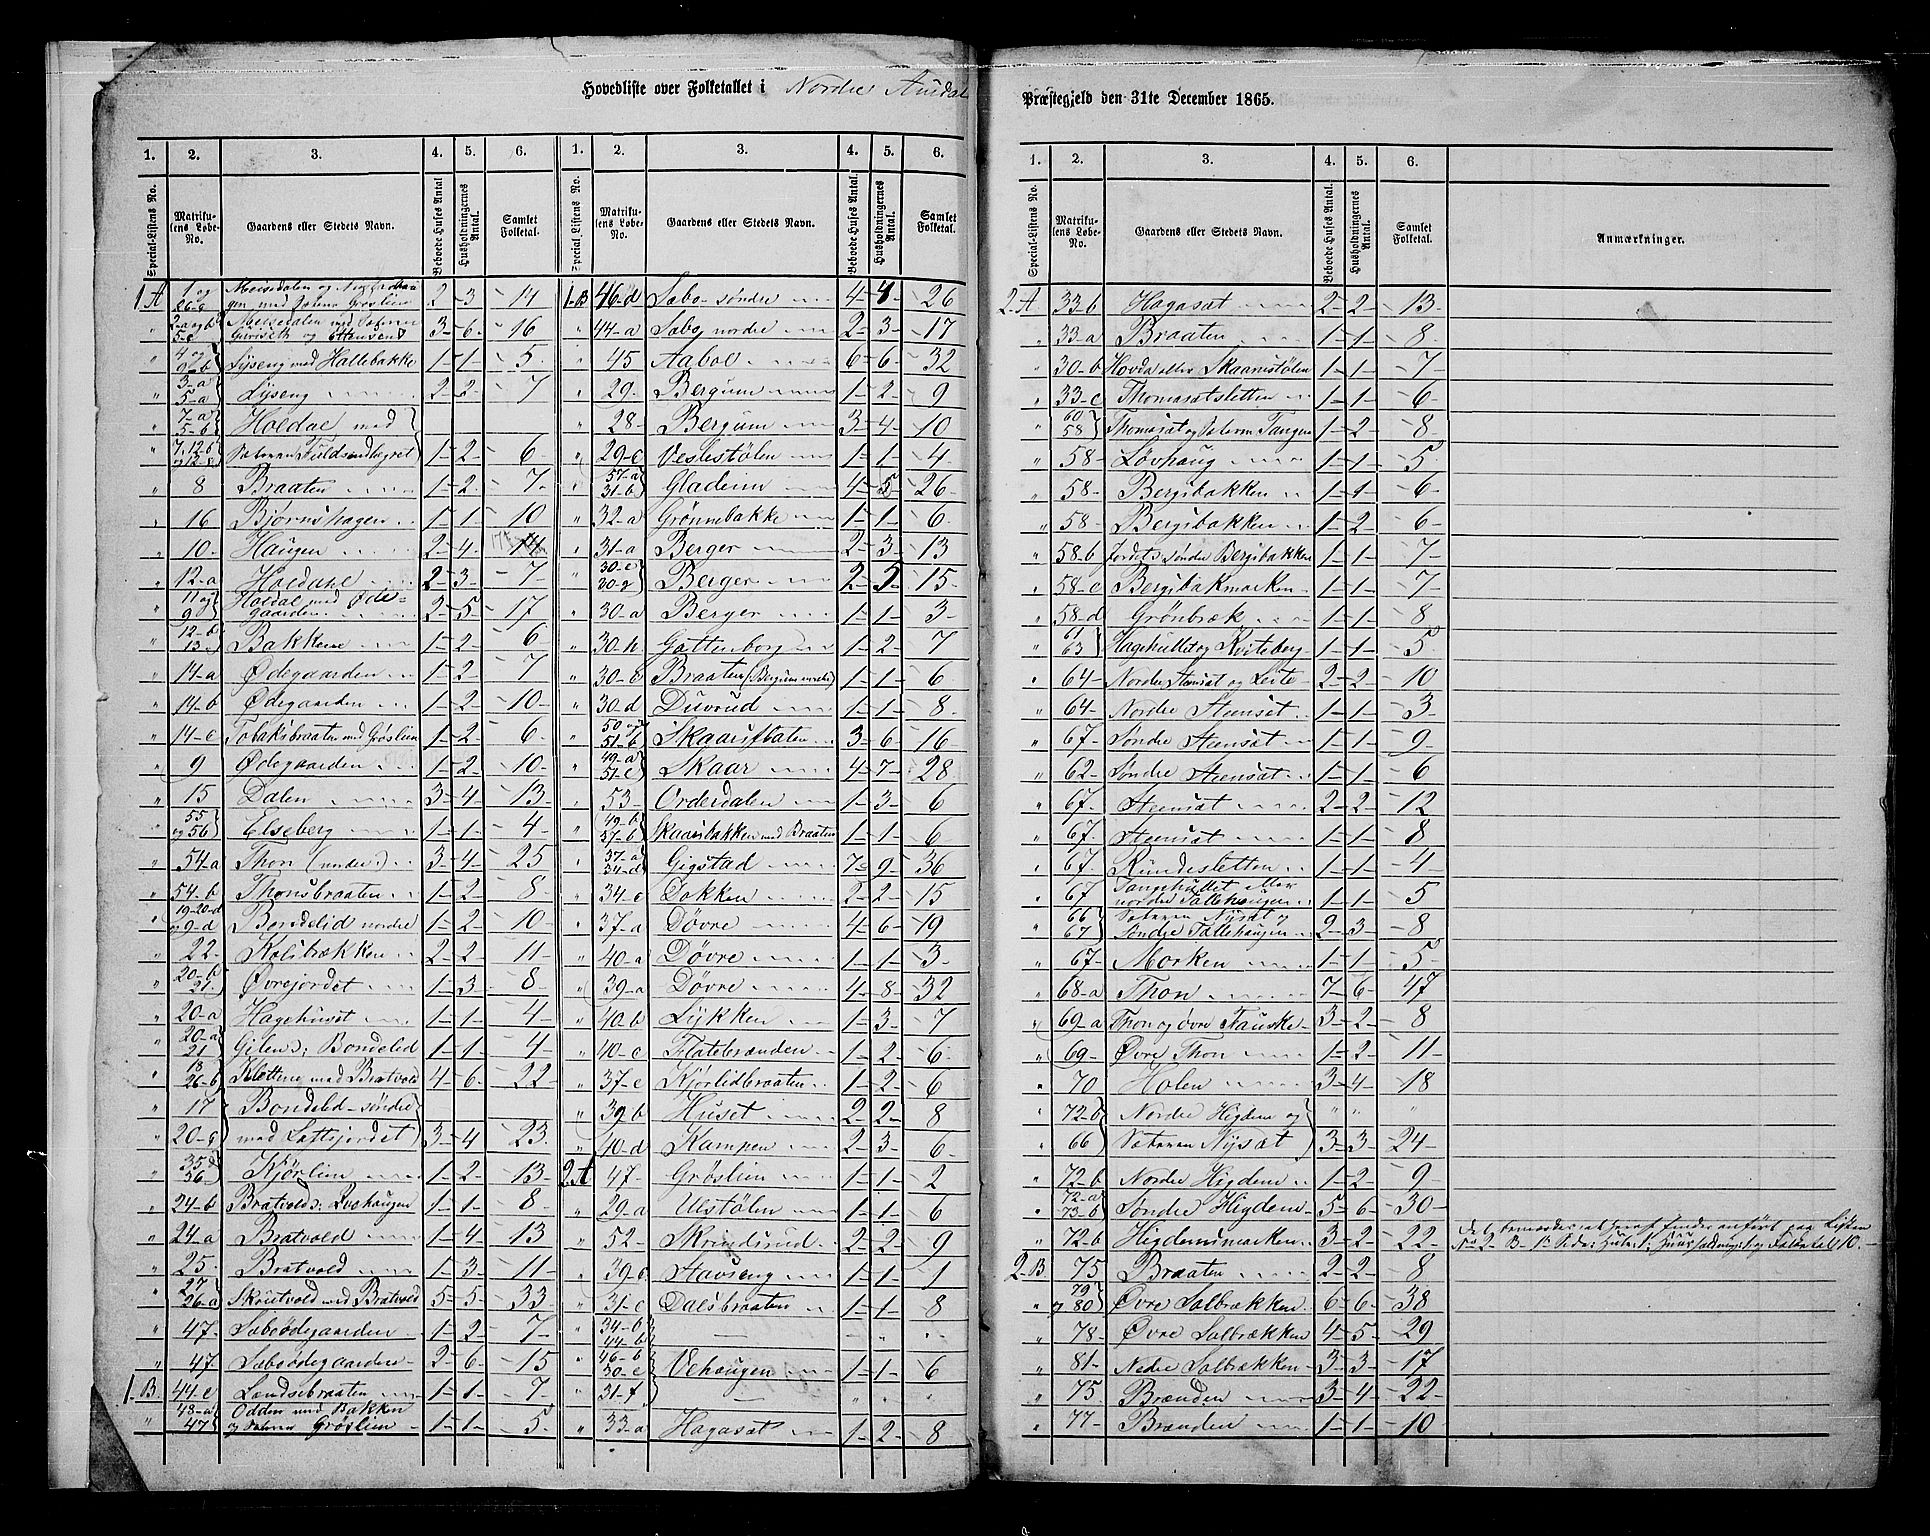 Hovedliste over Folketallet i Nordre Aurdal
Præstegjeld den 31te December 1865.
1. 2. 3. 4. 5. 6. 1. 2. 3. 4. 5. 6.
Special-Listens No. Matrikulens Løbe-No. Gaardens eller Stedets Navn. Beboede Huses Antal Husholdningernes Antal. Samlet Folketal. Special-Listens No. Matrikulens Løbe-No. Gaardens eller Stedets Navn. Beboede Huses Antal. Husholdningernes Antal. Samlet Folketal.
1 A 1 og 2 - 3 - 14
2-a og b 3 - 6 - 16
" 4 og 9-b Lyseng med Hallebakke 1 - 1 - 5
" 3-a 5-a Lyseng 2 - 2 - 7
" 7-a 5-b Holdal med
1 - 2 - 6
" 8 Braaten 1 - 2 - 7
" 16 Bjørnshagen 1 - 1 - 10
" 10 Haugen 2 - 4 - 14
" 12-a Holdahl 2 - 3 - 7
" 11 og 9 Holdal med Ødegaarden 2 - 5 - 17
" 12-b 13 Bakkene 1 - 2 - 6
" 14-a Ødegaarden 1 - 2 - 7
" 14-b Ødegaarden 1 - 2 - 10
" 14-c Tobaksbraaten med Grøslien 1 - 2 - 6
" 9 Ødegaarden 1 - 2 - 10
" 15 Dalen 3 - 4 - 13
" 55 og 56 Elseberg 1 - 1 - 4
" 54-a Thon (nedre) 3 - 4 - 25
" 54-b Thonsbraaten 1 - 2 - 8
" 19-20-d og 9-d Bondelid nordre 1 - 2 - 10
" 22 Kolsbrækken 2 - 2 - 11
" 20-b 21 Øvrejordet 1 - 3 - 8
" 20-a Hagehuset 1 - 1 - 4
" 20-a 21 Bondelid 1 - 1 - 4
" 18 26-b Klettene med Bratvold 4 - 6 - 22
" 17 Bondelid søndre
" 20- med Loftsjordet 3 - 4 - 23
" 35 56 Kjørlien 1 - 2 - 13
" 24-b Bratvolds: 1 - 1 - 8
" 24-a Bratvold 1 - 4 - 13
" 25 Bratvold 1 - 3 - 11
" 27 26-a Skrutvold med Bratvold 5 - 5 - 33
" 47 Sæboødegaarden 1 - 2 - 7
" 47 Sæboødegaarden 2 - 6 - 15
1 B 44-c Lændsebraaten 1 - 1 - 7
" 48-a 47 Odden med Bakken og Sæteren Grøslien 1 - 1 - 5
1 B 46-d Sæbo søndre 4 - 4 - 26
" 44-a Sæbo nordre 2 - 3 - 17
" 45 Aabol 6 - 6 - 32
" 29 Bergum 1 - 2 - 9
" 28 Bergum 3 - 4 - 10
" 29-c Veslestølen 1 - 1 - 4
" 57-a 31-b Gladeim 4 - 5 - 26
" 32-a Grønnebakke 1 - 1 - 6
" 31-a Berger 2 - 3 - 13
" 30-e 30-g Berger 2 - 5 - 15
" 30-a Berger 1 - 1 - 3
" 30-h Gøttenborg 1 - 2 - 7
" 30-c Braaten (Bergum nordre) 1 - 1 - 6
" 30-d Duvrud 1 - 1 - 8
" 50 og 51-b Skaarsflaten 3 - 6 - 16
" 49-a 51-c Skaar 4 - 7 - 28
" 53 Ordersdalen 1 - 3 - 6
" 49-b 57-b Skaarsbakken med Braaten 1 - 1 - 6
" 37-a 34-d Gigstad 7 - 9 - 36
" 34-c Dokken 2 - 2 - 15
" 37-a Døvre 4 - 6 - 19
" 40-a Døvre 1 - 1 - 3
" 39-a Døvre 4 - 8 - 32
" 40-b Lykken 1 - 3 - 7
" 40-c Flatebrænden 1 - 2 - 6
" 37-c Kjørlidbraaten 1 - 2 - 6
" 39-b Huset 2 - 2 - 8
" 40-d Kampen 2 - 3 - 6
2 A 47 Grøslien 1 - 1 - 2
" 29-a Ulstølen 1 - 1 - 6
" 52 Skrindsrud 2 - 2 - 9
" 39-c Stavseng 1 - 1 - 1
" 31-c Dalsbraaten 1 - 1 - 8
" 34-b 44-b
" 46-b 30-c Vehaugen 1 - 1 - 6
" 31-f
" 33-a Hagasæt 1 - 2 - 8
1. 2. 3. 4. 5. 6.
Special-Listens No. Matrikulens Løbe-No. Gaardens eller Stedets Navn. Beboede Huses Antal. Husholdningernes Antal. Samlet Folketal. Anmærkninger.
2 A 33-b Hagasæt 2 - 2 - 13
" 33-a Braaten 1 - 1 - 8
" 30-b Hovda eller Skaarestølen 1 - 1 - 7
" 33-c Thomasætsletten 1 - 1 - 6
" 60 58 Thomasæt og Sæteren Tangen 1 - 2 - 8
" 58 Løvhaug 1 - 1 - 5
" 58 Bergsbakken 1 - 1 - 6
" 58 Bergsbakken 1 - 2 - 6
" 58-b Jordet søndre Bergsbakken 1 - 1 - 7
" 58-c Bergsbakmarken 1 - 1 - 7
" 58-d Grønbræk 1 - 1 - 8
" 61 63 Hagehullet og Kviteberg 1 - 1 - 5
" 64 Nordre Steensæt og Leite 2 - 2 - 10
" 64 Nordre Steensæt 1 - 1 - 3
" 67 Søndre Steensæt 1 - 1 - 9
" 62 Søndre Steensæt 1 - 1 - 6
" 67 Steensæt 2 - 2 - 12
" 67 Steensæt 1 - 1 - 8
" 67 Rundesletten 1 - 1 - 4
" 67 Tangehullet eller nordre Tallehaugen 1 - 1 - 5
" 66 67 Sæteren Nysæt og Søndre Tallehaugen 2 - 3 - 8
" 67 Morken 1 - 1 - 5
" 68-a Thon 7 - 6 - 47
" 69-a Thon og øvre Fauske 3 - 2 - 8
" 69 Øvre Thon 1 - 2 - 11
" 70 Holen 3 - 4 - 18
" 72-b Nordre Higdem og " " "
" 66 Sæteren Nysæt 3 - 3 - 24
" 72-b Nordre Higdem 1 - 2 - 9
" 72-a 73-b Søndre Higdem 5 - 6 - 30
" 72-b Higdemsmarken 3 - 2 - 22 Det bemærkes at heraf findes anført paa Listen No 2 - B - 1ste Side: Huse 1, Huusholdninger 1 og Folketal 10.
2 B 75 Braaten 2 - 2 - 8
" 79 og 80 Øvre Salbrækken 6 - 6 - 38
" 78 Øvre Salbrækken 4 - 5 - 29
" 81 Nedre Salbrækken 3 - 3 - 17
" 75 Brænden 3 - 4 - 22
" 77 Brænden 1 - 1 - 10